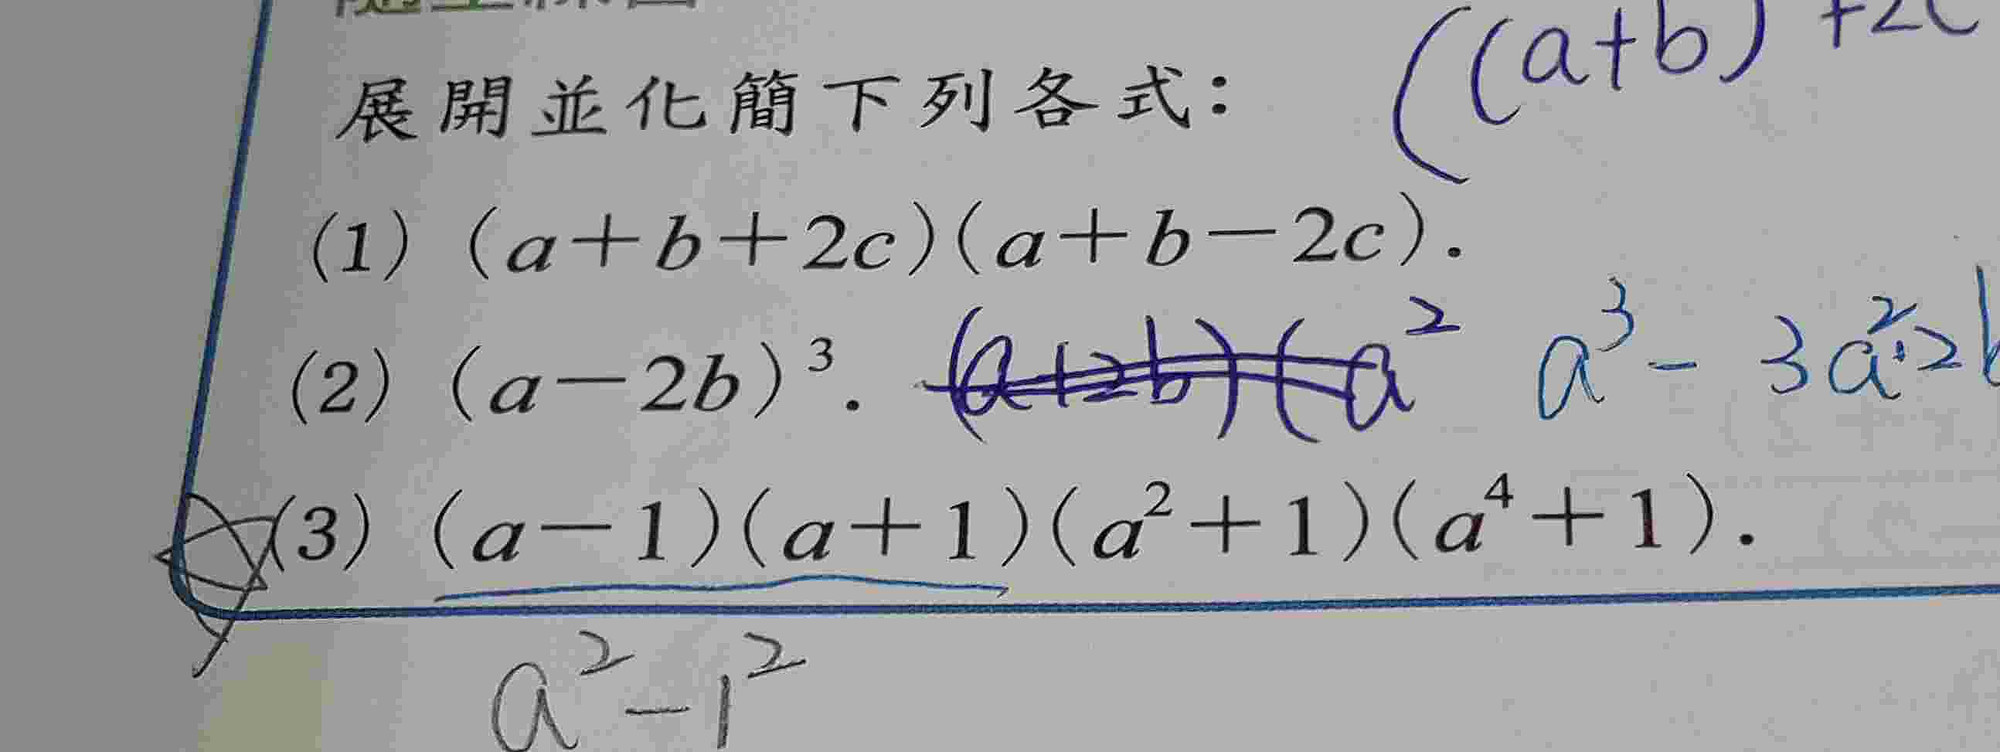 ((a+b)+2c
展開並化簡下列各式:
(1) (a+b+2c)(a+b-2c).
(2) (a-2b)³. (a+2b)(a² a³-3a²·2b
(3) (a-1)(a+1)(a²+1)(a⁴+1).
a²-1²